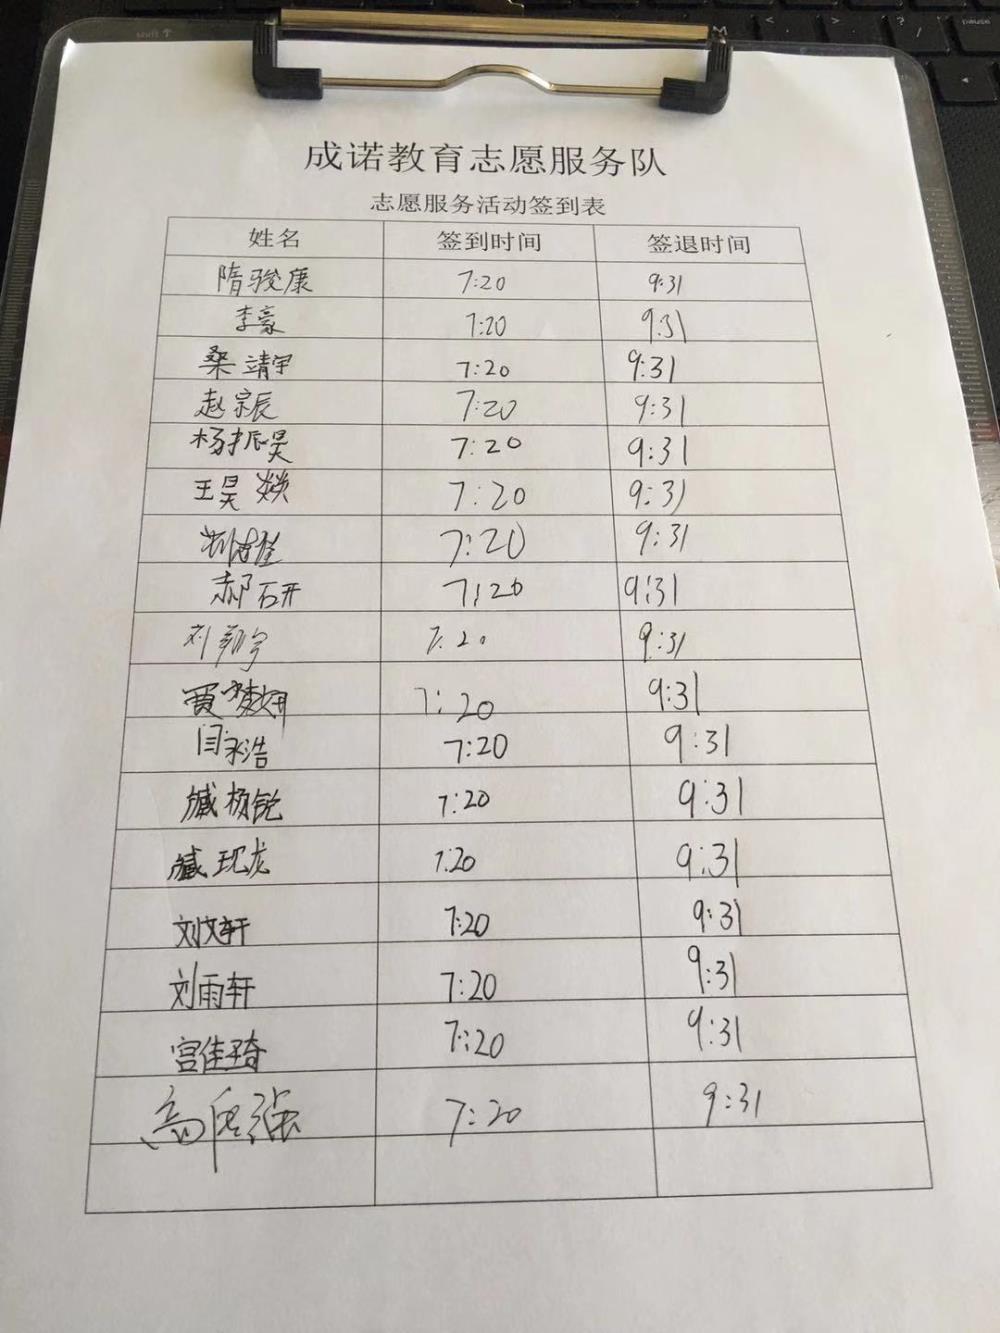 成诺教育志愿服务队
志愿服务活动签到表
姓名 签到时间 签退时间
隋骏康 7:20 9:31
李豪 7:20 9:31
桑靖宇 7:20 9:31
赵宗辰 7:20 9:31
杨振昊 7:20 9:31
王昊焱 7:20 9:31
7:20 9:31
郝石开 7:20 9:31
刘翔宇 7:20 9:31
贾梦妍 7:20 9:31
闫永浩 7:20 9:31
臧杨锐 7:20 9:31
臧现龙 7:20 9:31
刘文轩 7:20 9:31
刘雨轩 7:20 9:31
宫佳琦 7:20 9:31
7:20 9:31